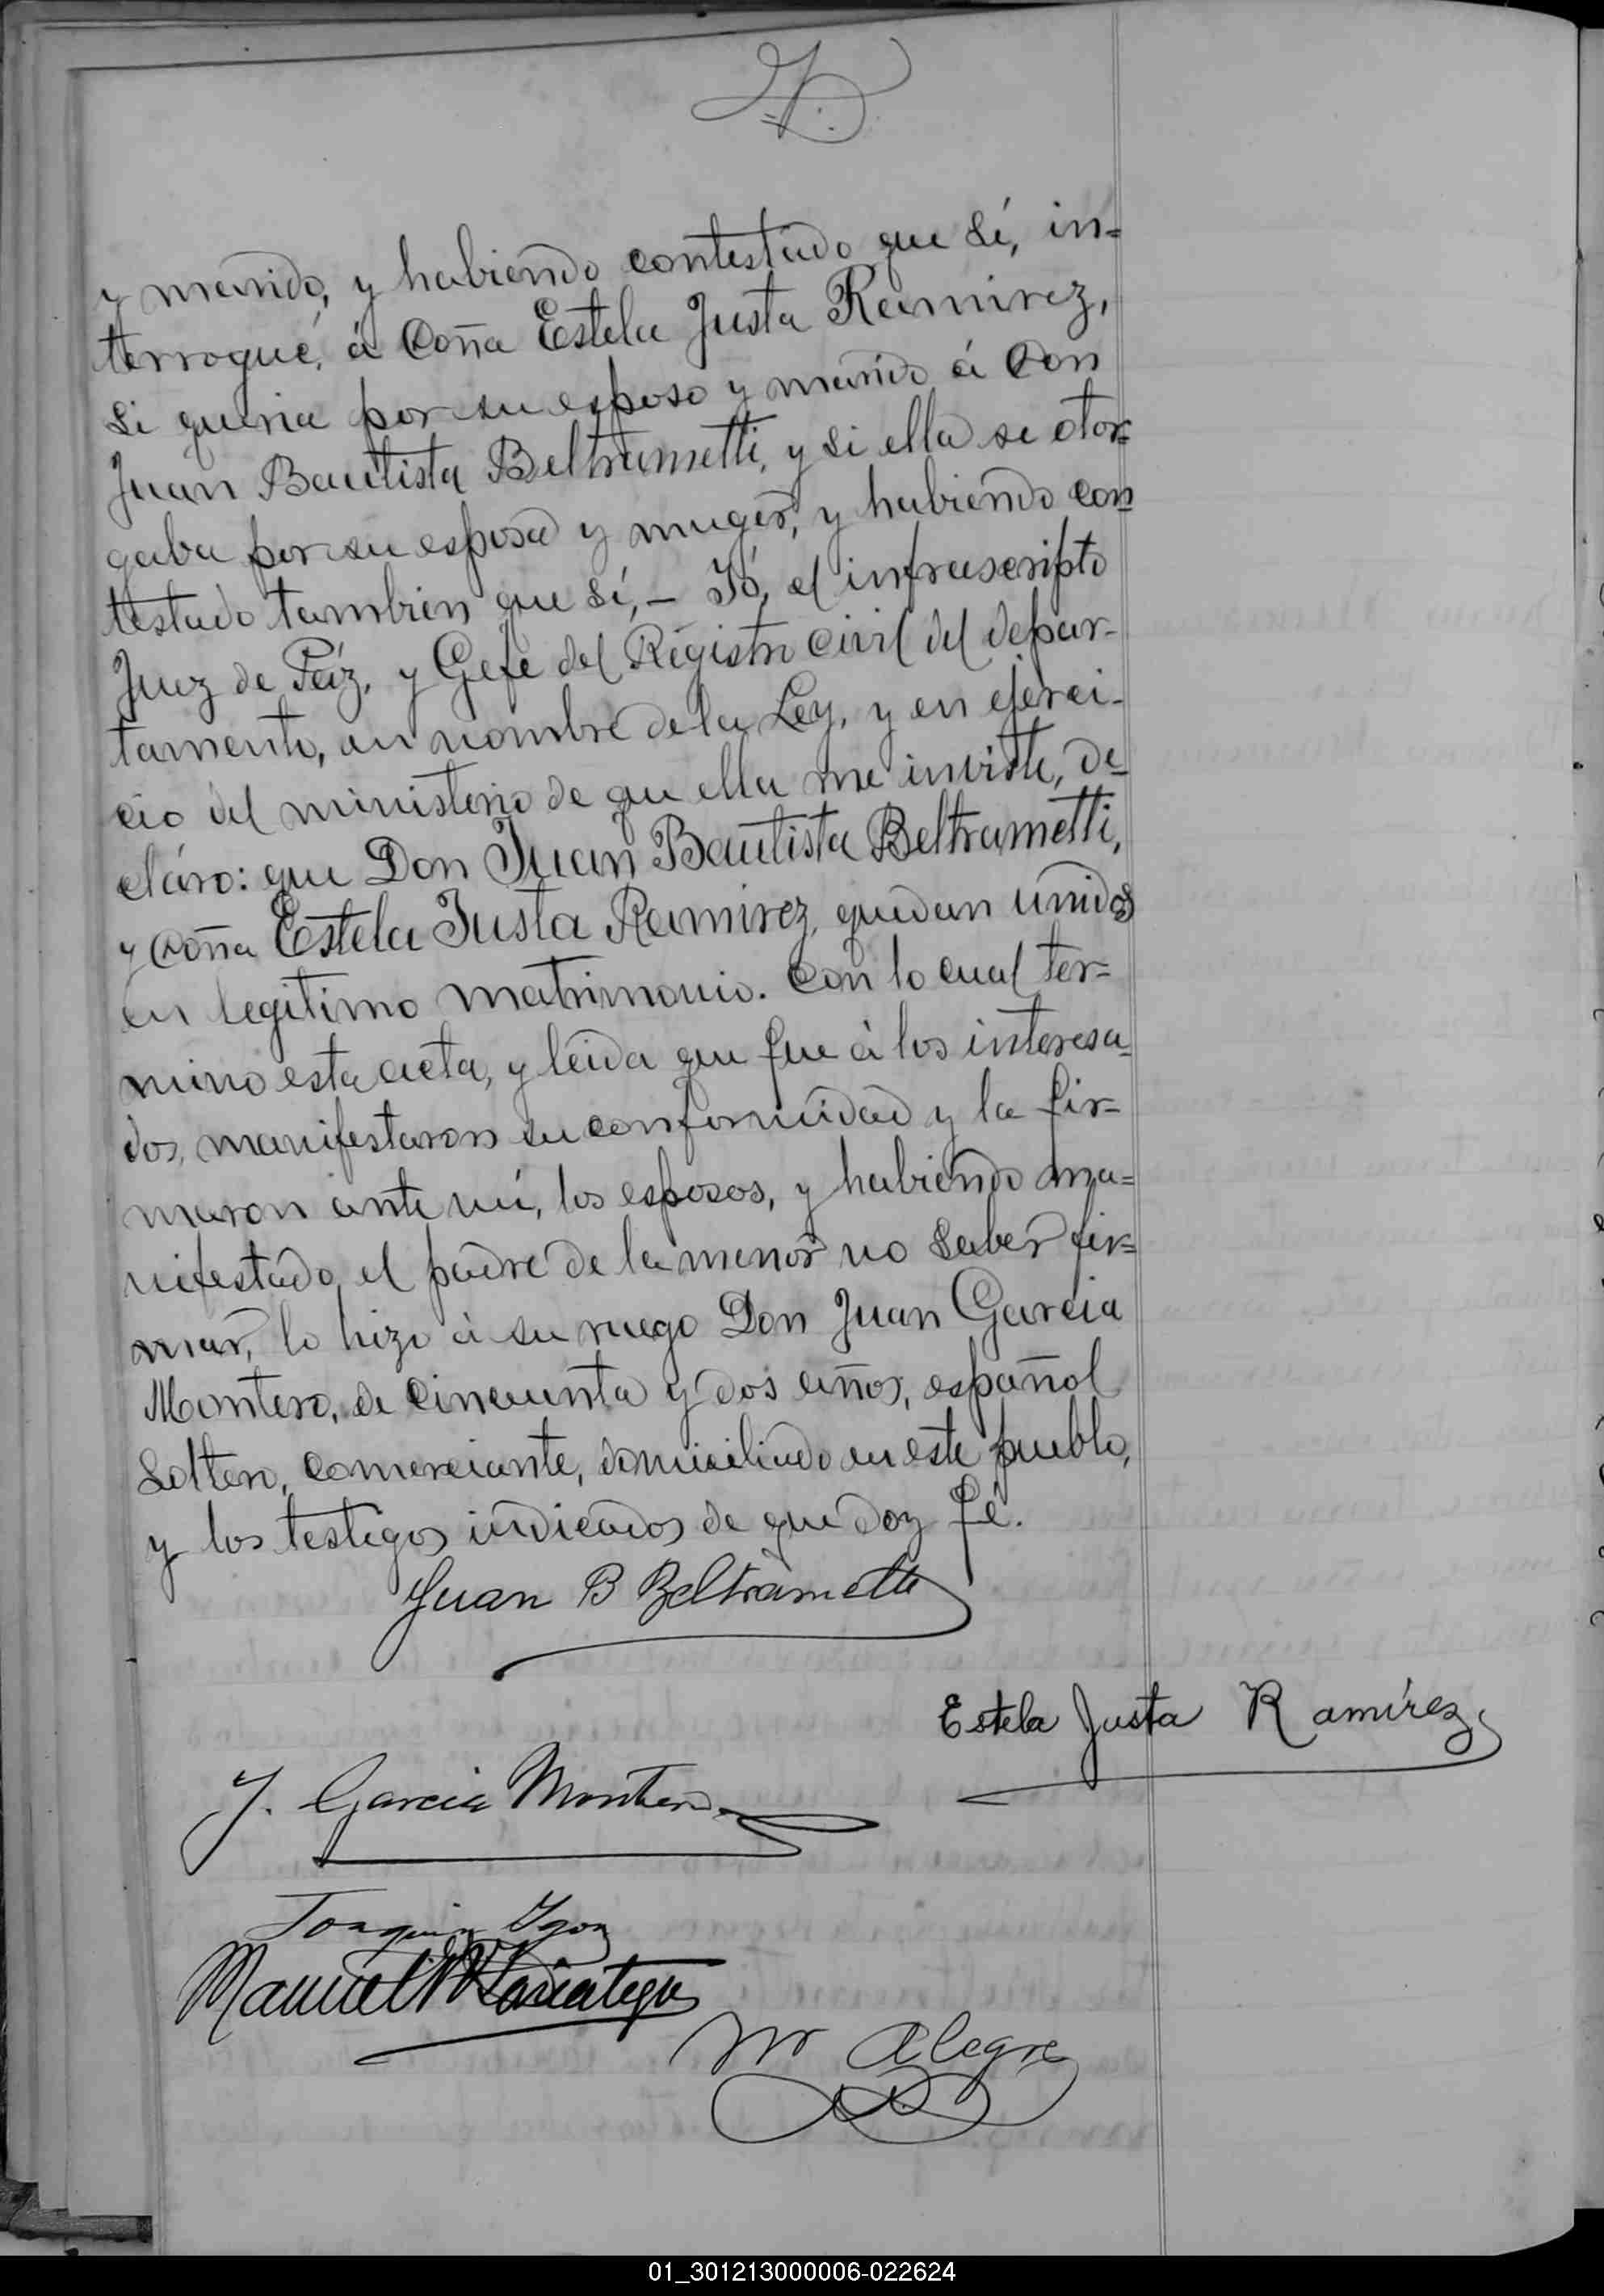 y marido, y habiendo contestado que sí, in-
terrogué, á Doña Estela Justa Ramirez,
si queria por su esposo y marido á Don
Juan Bautista Beltrametti, y si ella se otor-
gaba por su esposa y muger, y habiendo con-
testado tambien que sí, — Yó, el infrascripto
Juez de Páz, y Gefe del Registro Civil del depar-
tamento, en nombre de la Ley, y en ejerci-
cio del ministerio de que ella me inviste, de-
cláro: que Don Juan Bautista Beltrametti,
y Doña Estela Justa Ramirez, quedan unidos
en legitimo matrimonio. Con lo cual ter-
mino esta acta, y leida que fue á los interesa-
dos, manifestaron su conformidad y la fir-
maron ante mí, los esposos, y habiendo ma-
nifestado el padre de la menor no saber fir-
mar, lo hizo á su ruego Don Juan Garcia
Montero, de cincuenta y dos años, español
Soltero, comerciante, domiciliado en este pueblo,
y los testigos indicados de que doy fé.
Juan B Beltrametti
Estela Justa Ramírez
J. Garcia Montero
Joaquin
Manuel
M Alegre
01_301213000006-022624